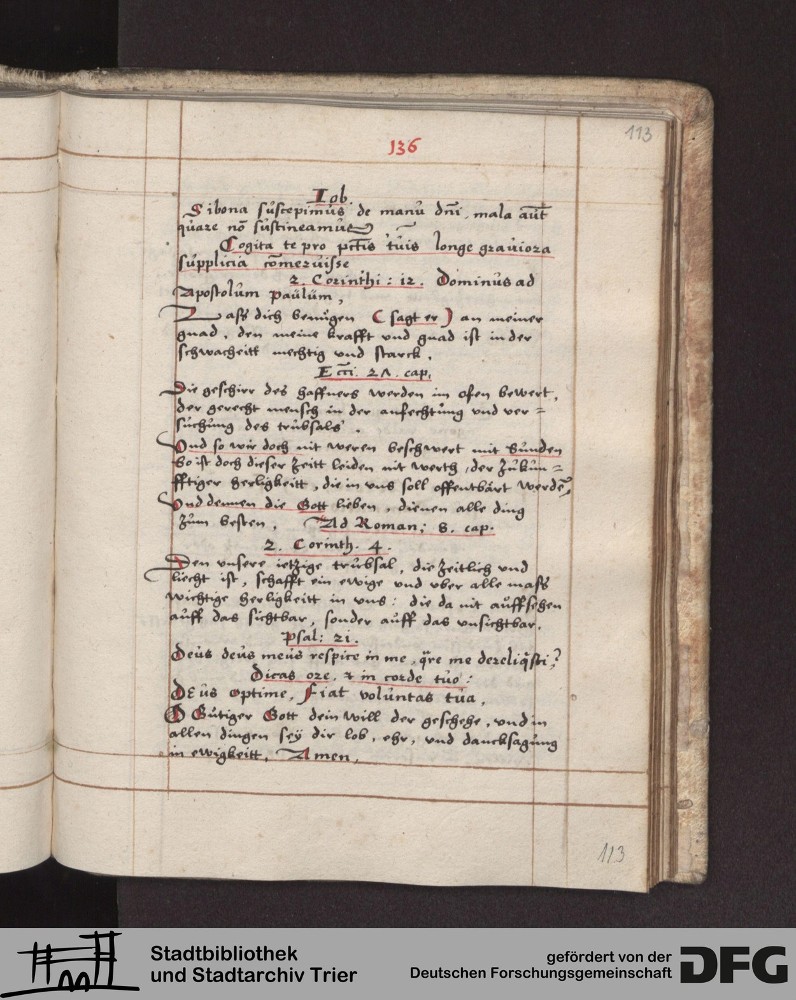 113
136
Iob.
Si bona suscepimus de manu dñi, mala aut̃
quare nõ sustineamus
Cogita te pro pctis tuis longe grauiora
supplicia cõmeruisse
2. Corinthi: 12. Dominus ad
Apostolum Paulum,
Lass dich benugen (sagt er) an meiner
gnad, den meine krafft vnd gnad ist in der
schwacheitt mechtig vnd starck.
Ecci. 27. cap.
Die geschirr des haffners werden im ofen bewert,
der gerecht mensch in der anfechtung vnd ver=
suchung des trubsals.
Vnd so wir doch nit weren beschwert mit sunden
So ist doch dieser Zeitt leiden nit werth, der Zukun=
fftiger herligkeitt, die in vns soll offentbart werdẽ,
Vnd dennen die Gott lieben, dienen alle ding
Zum besten. Ad Roman; 8. cap.
2. Corinth. 4.
Den vnsere ietzige trubsal, die Zeitlich vnd
liecht ist, schafft ein ewige vnd vber alle mass
wichtige herligkeitt in vns: die da nit auffsehen
auff das sichtbar, sonder auff das vnsichtbar.
Psal: 21.
Deus deus meus respice in me, q̃re me dereliq̃sti?
Dicas ore, & in corde tuo:
Deus optime, Fiat voluntas tua,
O Gutiger Gott dein will der geschehe, vnd in
allen dingen seÿ dir lob, ehr, vnd dancksagung
in ewigkeitt, Amen.
113
Stadtbibliothek
und Stadtarchiv Trier
gefördert von der
Deutschen Forschungsgemeinschaft
DFG